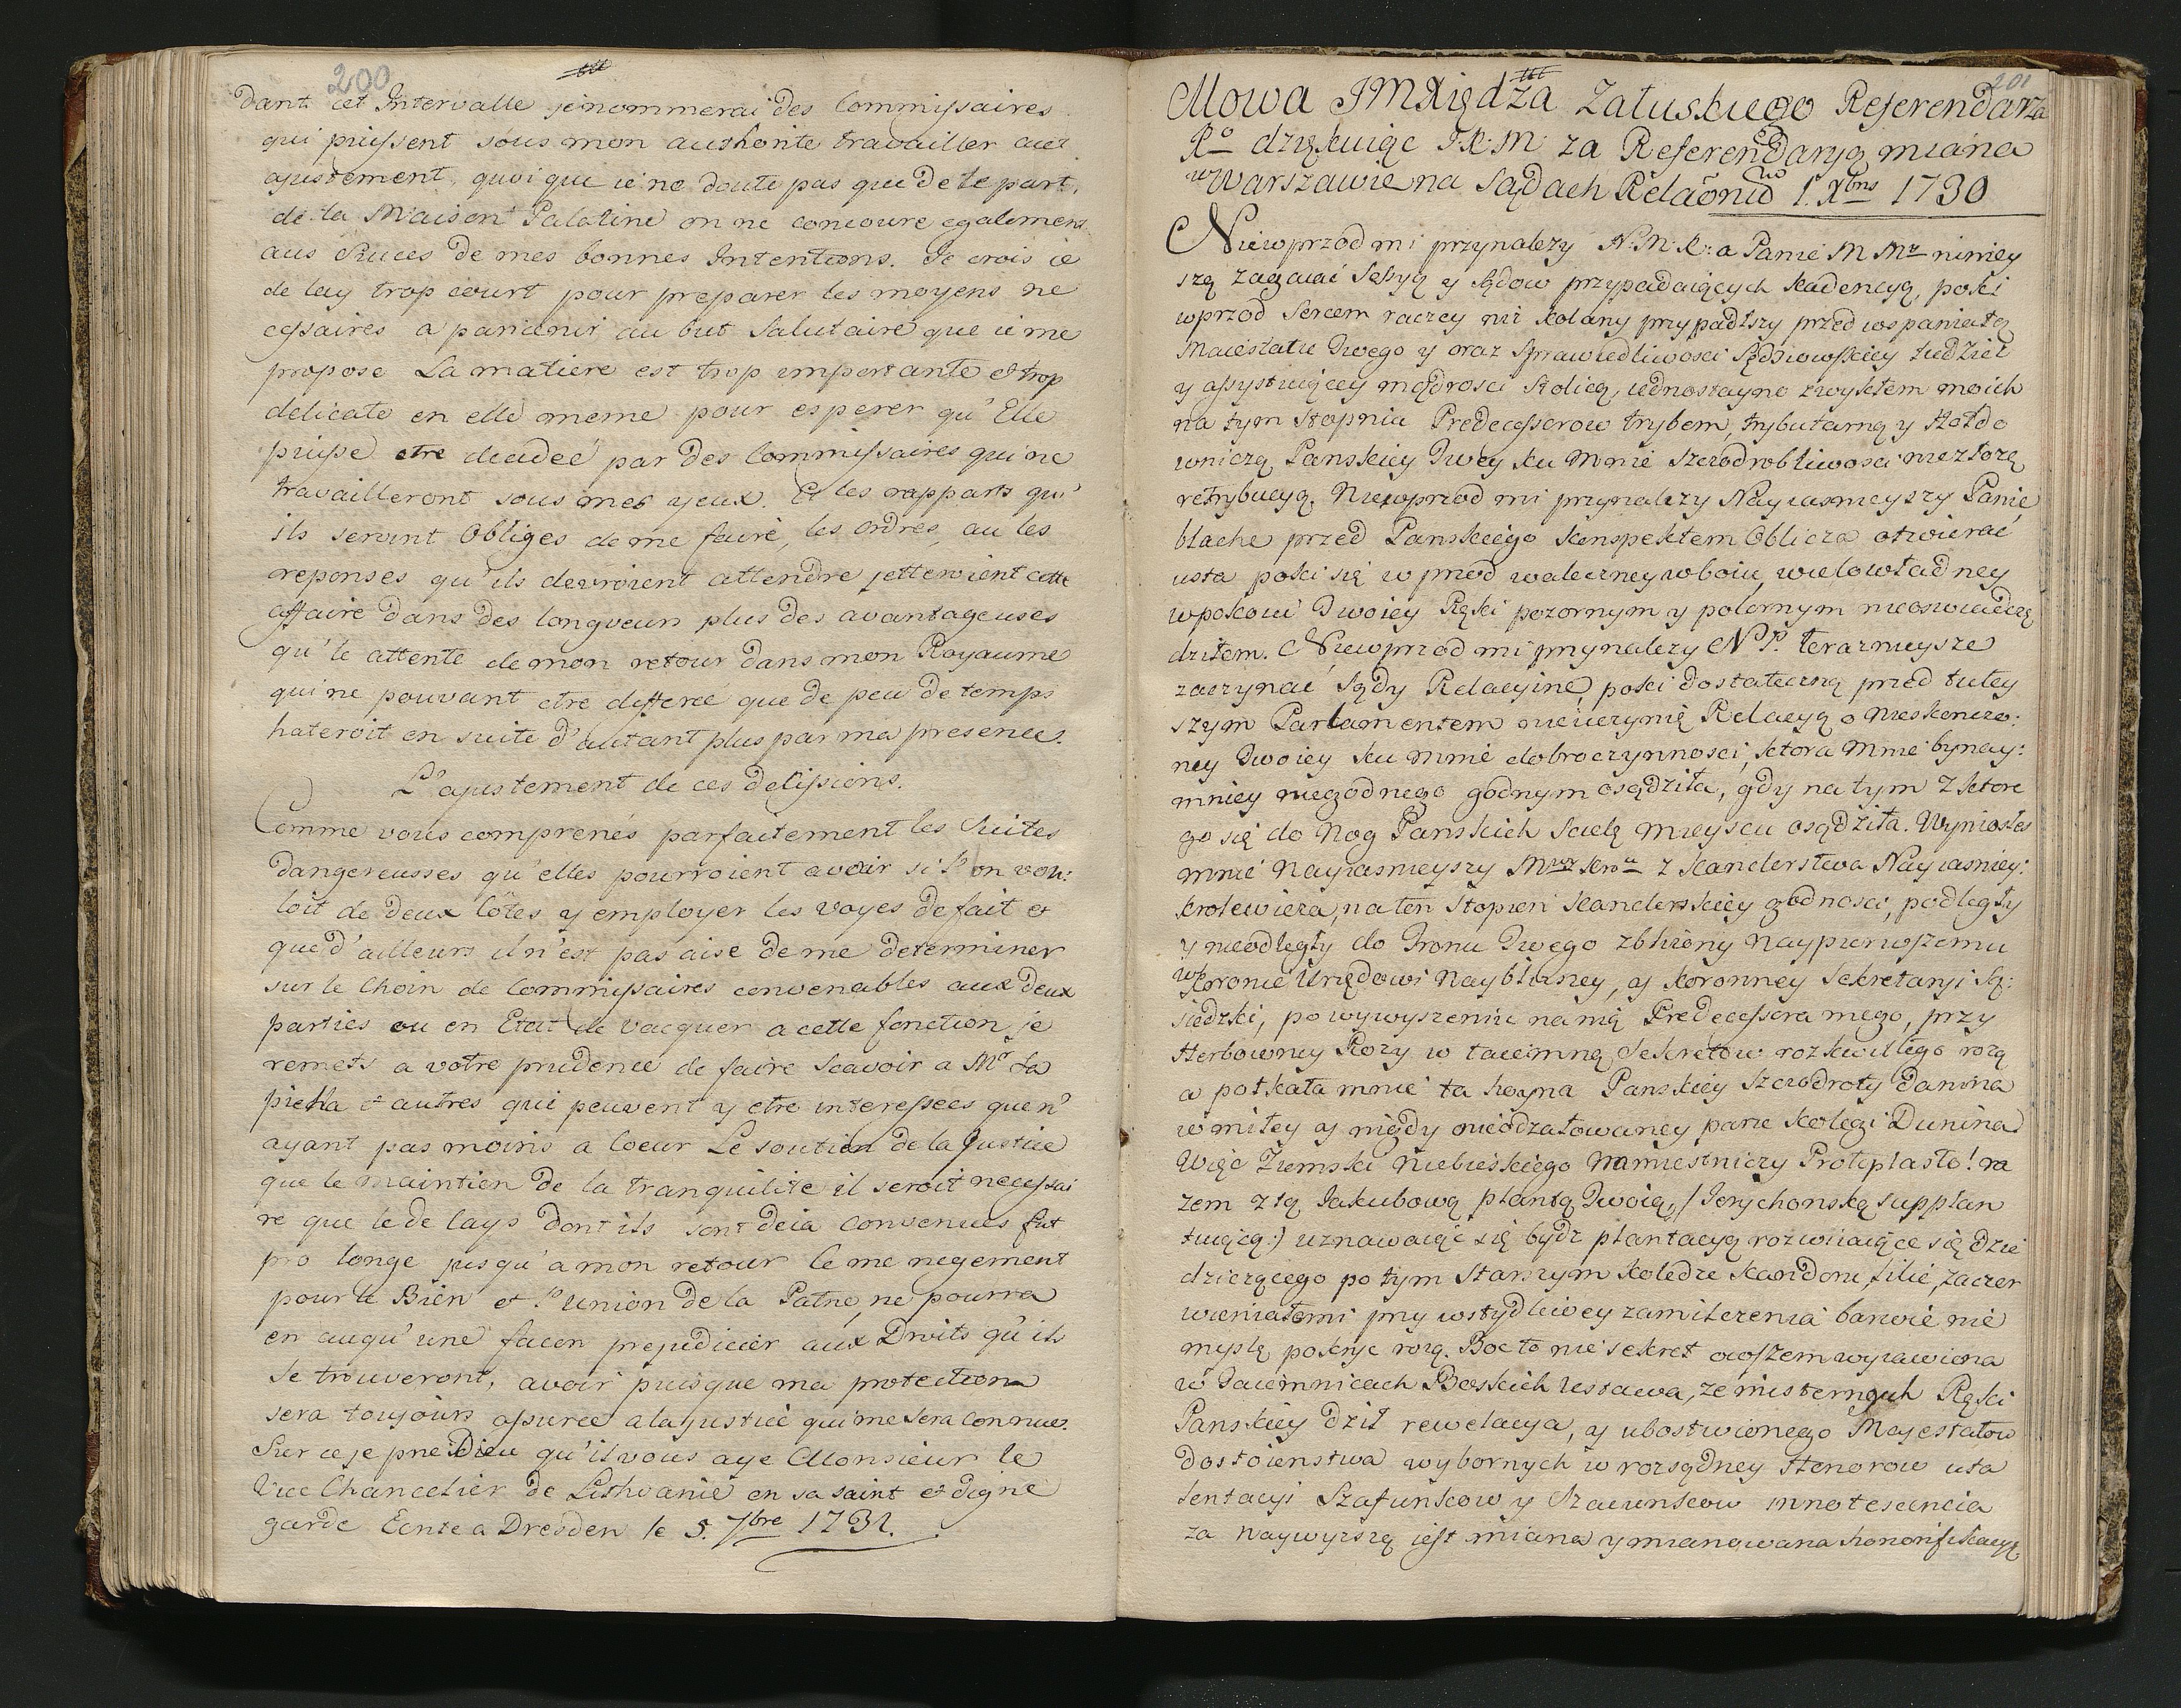 200
dant cet Intervalle je nommerai des Commissaires
qui puissent sous mon authorite travailler aut
ajustement, quoi que ie ne doute pas que de le part.
de la Maison Palatine on ne concoure egalement
aus Suices de mes bonnes Intentions. Je crois ie
de lay trop court pour preparer les moyens ne
cessaires a parvenir au but Salutaire que ie me
propose La matiere est trop importante et trop
delicate en elle meme pour esperer qu' Elle
puisse etre decidée par des Commissaires qui ne
travailleront sous mes yeux. Et les rapports qu'
ils seront Obliges de me faire, les ordres, au les
reponses qu'ils devroient attendre jetteroient cette
affaire dans des longveurs plus des avantageuses
qu'le attente de mon retour dans mon Royaume
qui ne pouvant etre differeé que de peu de temps
hateroit en suite d'autant plus par ma presence.
L'ajustement de ces delissions.
Comme vous comprenés parfaitement les Suites
dangereusses qu'elles pourroient avoir si l'on vou:
loit de deux Côtes y employer les voyes de fait et
que d'ailleurs il n'est pas aise de me determiner
sur le Choin de Commissaires convenables aux deux
parties ou en Etat de vacquer a cette fonction je
remets a votre prudence de faire Scavoir a Mr Sa
piehla et autres qui peuvent y etre interessees que n'
ayant pas moins a Coeur Le soutien de la Justice
que le maintien de la tranquilite il seroit necessai
re que le de lays dont ils sont deia convenues fut
pro longe jusqu'a mon retour Ce me negement
pour le Bien et l'union de la Patrie, ne pourra
en auqu'une facon prejudicier aux Droits qu'ils
se trouveront, avoir puisque ma protection
sera toujours assuree a la justice qui me sera connue.
Sur ce je prie Dieu qu'il vous aye Monsieur le
Vice Chancelier de Lithvanie en sa saint et digne
garde Ecrite a Dresden le 5. 7bre 1731.
201
Mowa JMXiędza Załuskiego Referendarza
Ko dziękuiąc J.K.M. za Referendaryą miana
w Warszawie na Sądach Relaõnıd 1. Xbris 1730
Niewprzod mi przynalezy N. M. K: a Panie M Mr nimiey
szą zagaiać Sessyą y Sądow przypadaiących kadencyą, poki
wprzod Sercem raczey niż kolany przypadłszy przed wspaniałą
Maiestatu Twego y oraz Sprawiedliwosci Sędziowskiey tudziez
y assystuiącey mądrosci Stolicą, iednostayno zwykłem moich
na tym Stopniu Predecessorow trybem, trybutarną y Hołdo
wniczą Panskiey Twey ku mnie szczodrobliwosci niezłozę
retrybucyą. Niewprzod mi przynalezy Nayiasnieyszy Panie
błache przed Panskiego konspektem Oblicza otwierać
usta poki się wprzod waleczney wboiu, wielowładney
wpokoiu Twoiey Ręki pozornym y pokornym nieoswiadczę
dziłem. Niewprzod mi przynalezy N P. teraznieysze
zaczynać Sądy Relacyine, poki dostateczną przed tutey
szym Parlamentem nieuczynię Relacyą o nieskonczo:
ney Twoiey ku mnie dobroczynnosci, ktora mnie bynay:
mniey niegodnego godnym osądziła, gdy na tym z ktore
go się do Nog Panskich Sciele mieyscu osądziła. Wyniosłes
mnie Nayiasnieyszy Mrz Kro z Kanclerstwa Nayiasniey:
Krolewicza, na ten Stopien Kanclerskiey godnosci, podległy
y nieodległy do Tronu Twego zblizony naypierwszemu
w Koronie Urzędowi Naybliższey, y Koronney Sekretaryi Są:
siedzki, po wywyszeniu na nię Predecessora mego, przy
Herbowney Rozy w taiemną Sekretow rozkwitłego rozą
a potkała mnie ta hoyna Panskiey Szczodroty danina
w miłey y nigdy nieodzałowaney parze kolegi Dunina
Więc Ziemski Niebieskiego Namiestniczy Protoplasto! ra
zem z tą Jakubową plantą Twoią, /Jerychonską supplan
tuiącą:) uznawaiąc się bydz plantacyą rozwiiaiące się dzie
dziczącego po tym Starszym koledze Kandoru filie, zaczer
wieniałemi przy wstydliwey zamilczenia barwie nie
myslę pokryc rozą. Boć to nie sekret owszem wyiawiona
w Taiemnicach Boskich Ustawa, ze misternych Ręki
Panskiey dził rewelacya, y ubostwionego Majestatow
dostoienstwa wybornych w rozsądney Honorow usta
lentacyi Szafunkow y Szacunkow innotescencia
za naywyzszą iest miana y mianowana honorifikacyą